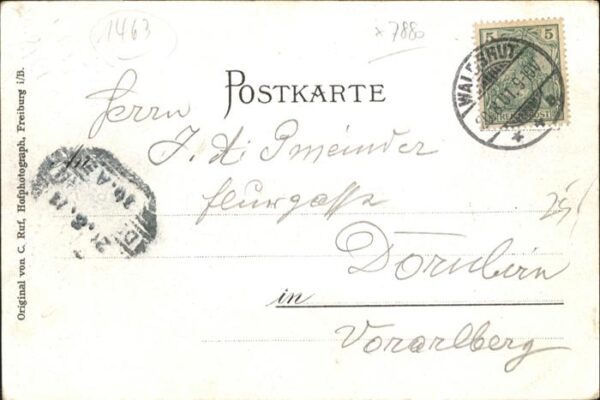 1463
x 7880
5 5
WALDSHUT
POSTKARTE
Herrn
J. A. Gmeinder
flurgasse
Dornbirn
in
Vorarlberg
Original von C. Ruf, Hofphotograph, Freiburg i/B.